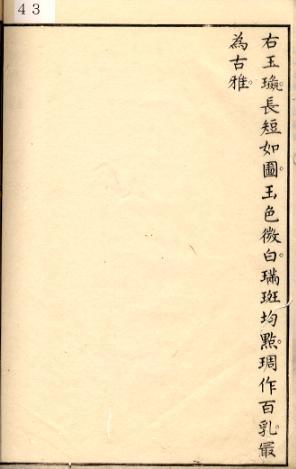 43
右玉璏。長短如圖。玉色微白。璊斑均點。琱作百乳。最
為古雅。